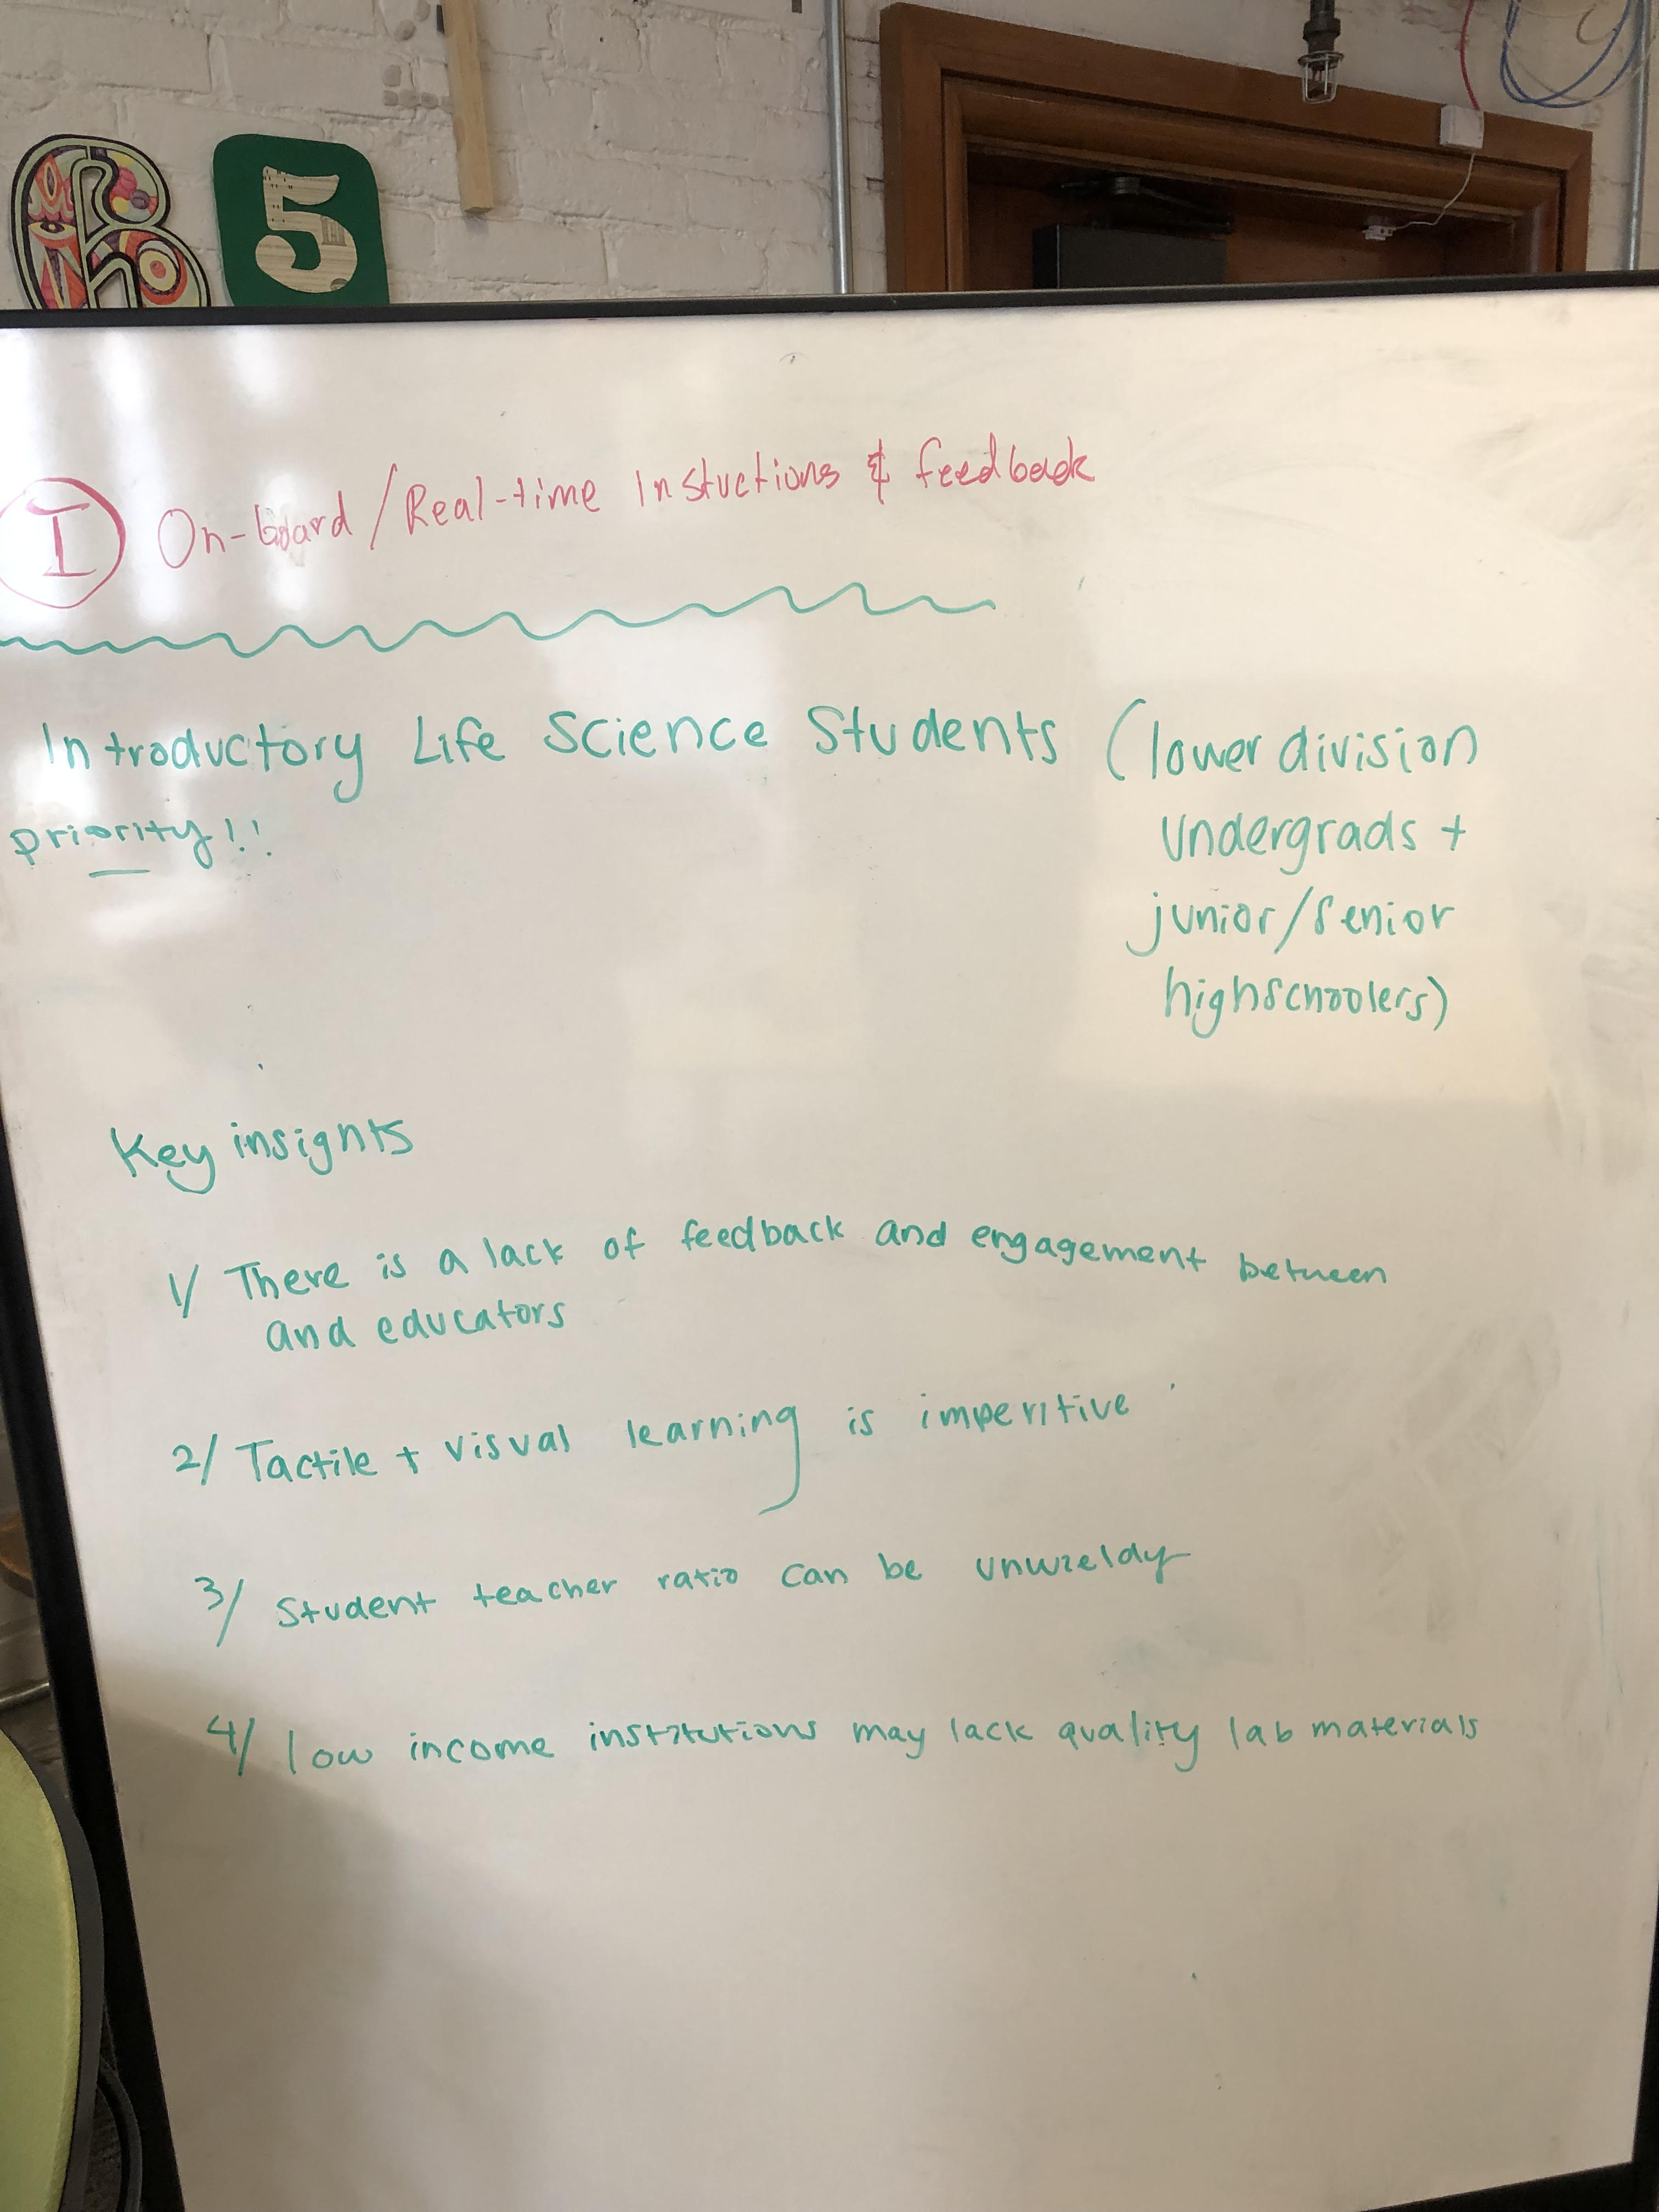 5
I On-board/Real-time Instuctions & feedback
Introductory Life Science Students (lower division
priority!!
undergrads +
junior/senior
highschoolers)
Key insights
1/ There is a lack of feedback and engagement between
and educators
2/ Tactile + visual learning is imperitive
3/ Student teacher ratio can be unwieldy
4/ low income institutions may lack quality lab materials